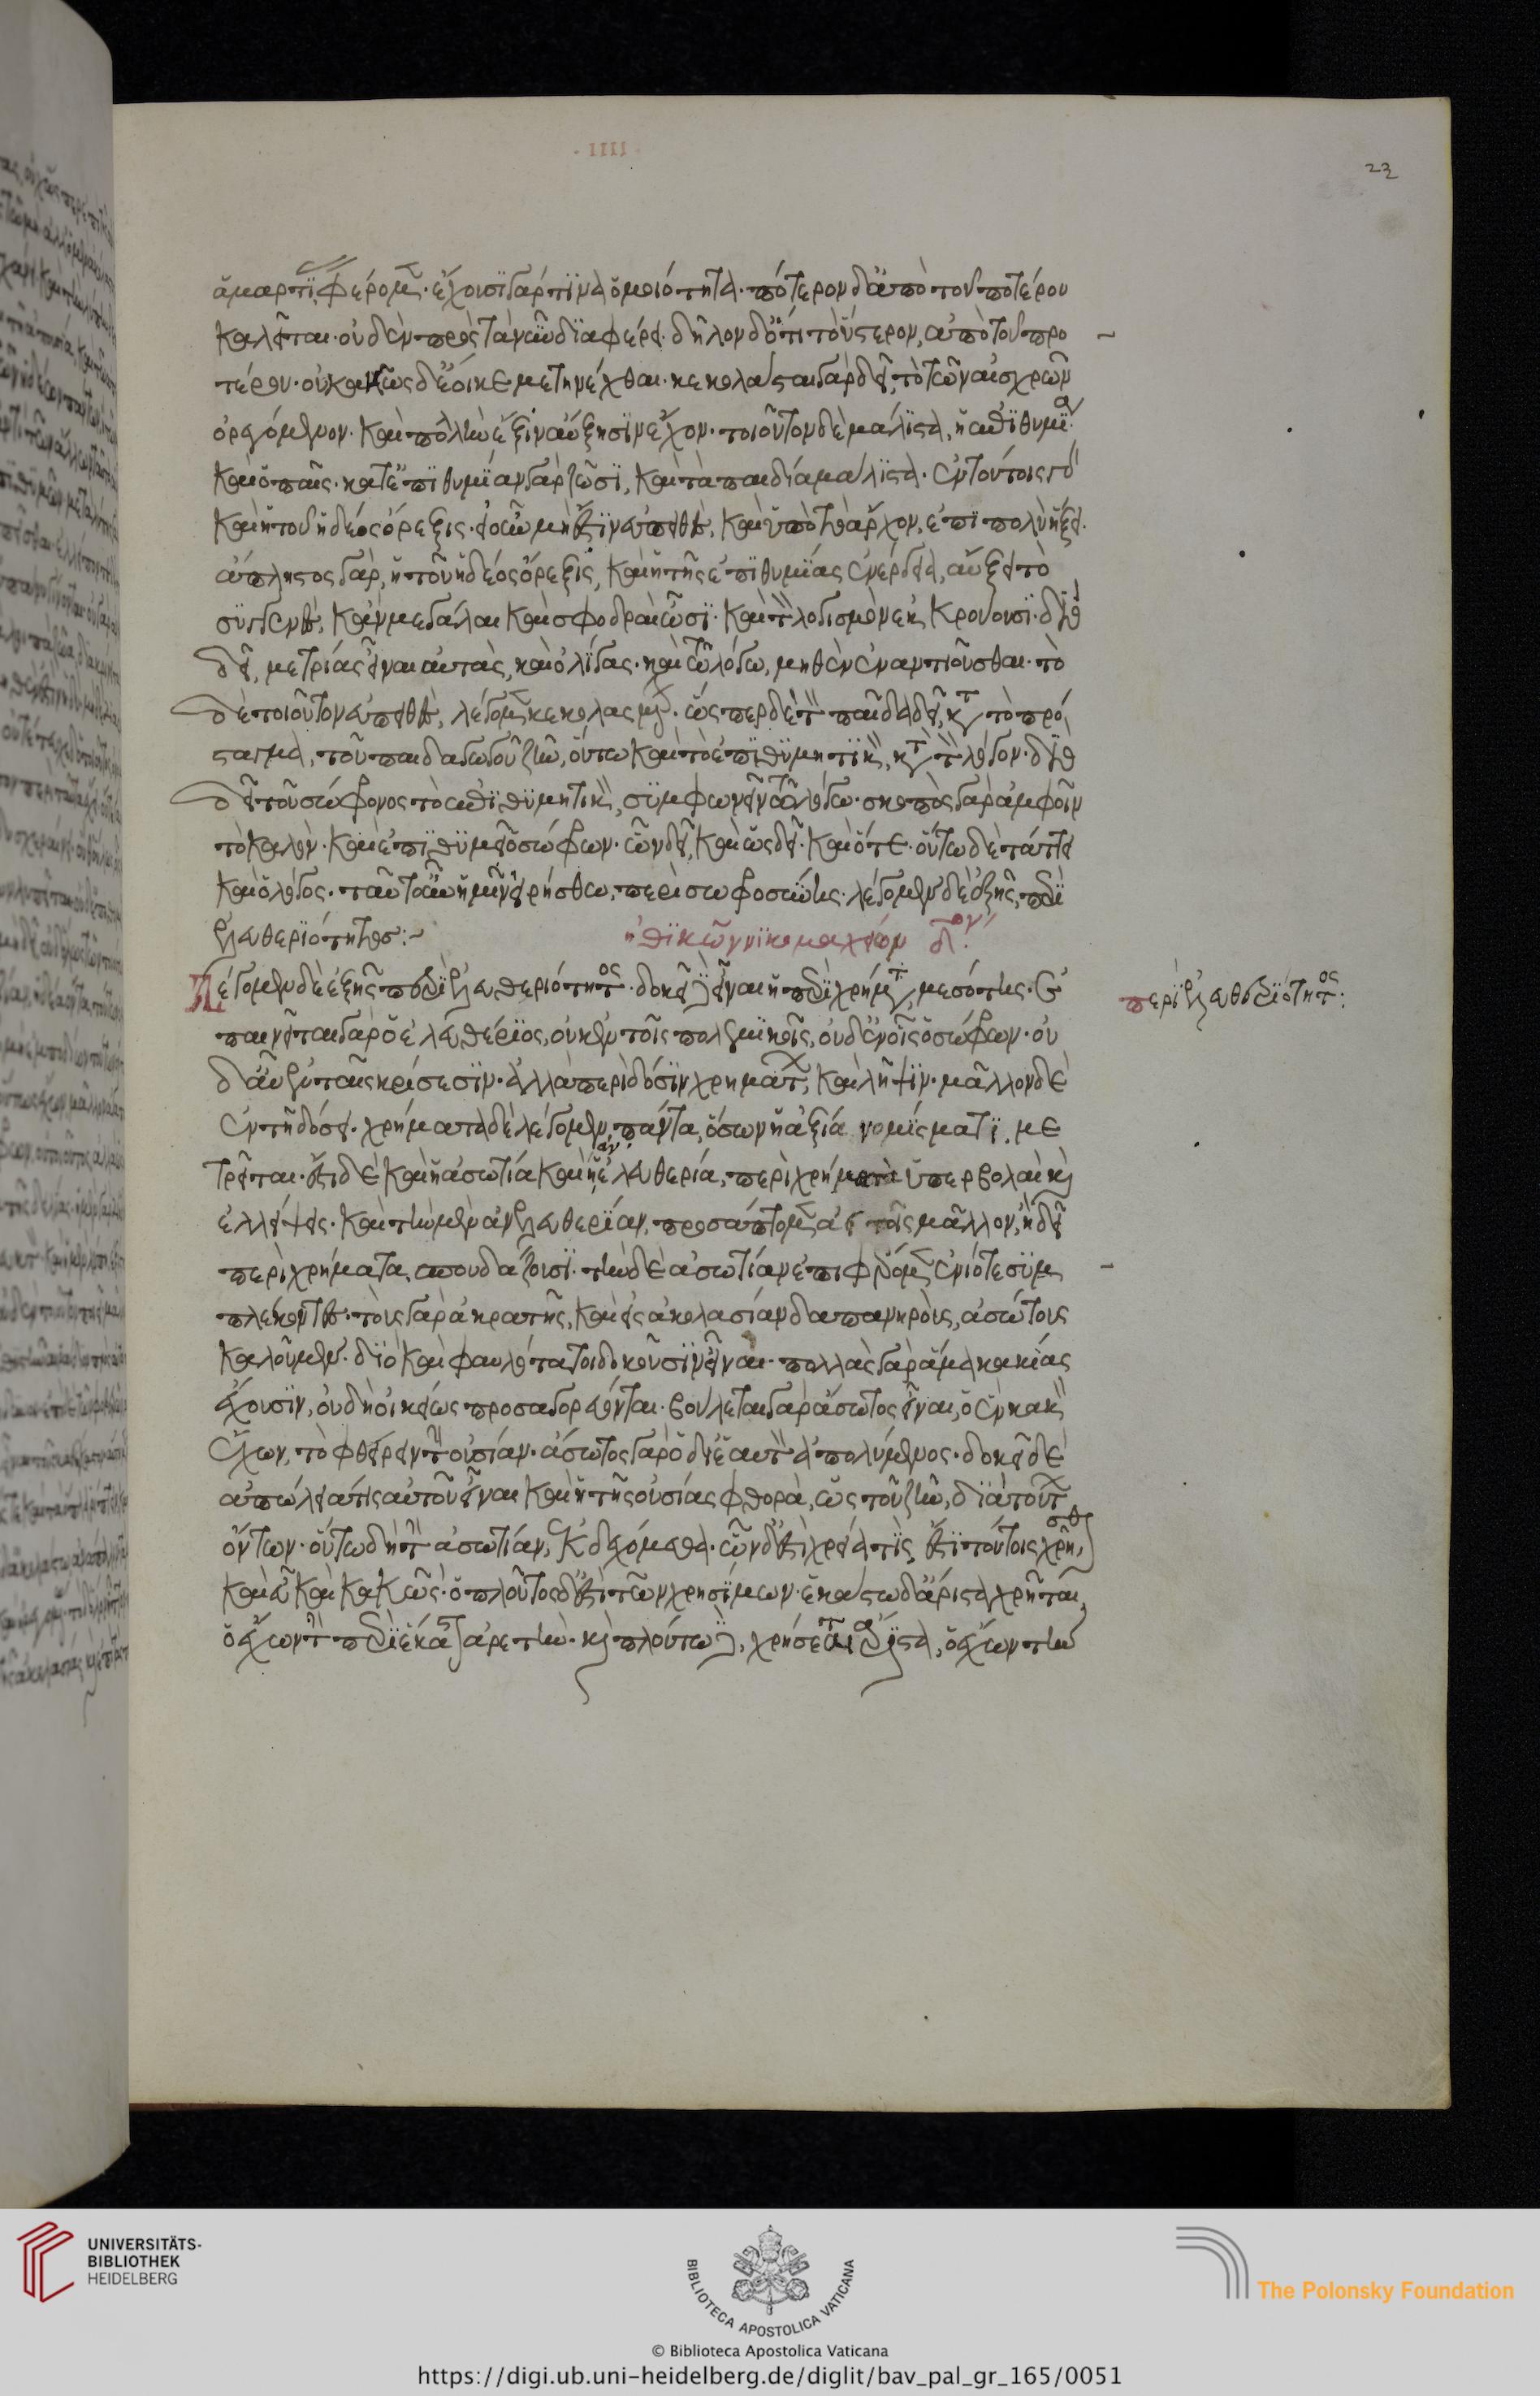 -IIII-
23
ἁμαρτί, φέρομεν· ἔχουσι γάρ τινα ὁμοιότητα· πότερον δ' ἀπὸ τοῦ ποτέρου
καλεῖται· οὐδὲν πρὸς τὰ νῦν διαφέρει· δῆλον δ' ὅτι τὸ ὕστερον, ἀπὸ τοῦ προ
τέρου· οὐ κακῶς δ' ἔοικε μετηνέχθαι· κεκολάσθαι γὰρ δεῖ, τὸ τῶν αἰσχρῶν
ὀρεγόμενον· καὶ πολλὴν ἕξιν αὔξησιν ἔχον· τοιοῦτον δὲ μάλιστα, ἡ ἐπιθυμία·
καὶ ὁ παῖς· κατ' ἐπιθυμίαν γὰρ ζῶσι, καὶ τὰ παιδία μάλιστα· ἐν τούτοις γὰρ
καὶ ἡ τοῦ ἡδέος ὄρεξις· εἰ οὖν μὴ εὐπειθὲς, καὶ ὑπὸ τὸ ἄρχον, ἐπὶ πολὺ ἥξει·
ἄπληστος γὰρ, ἡ τοῦ ἡδέος ὄρεξις, καὶ ἡ τῆς ἐπιθυμίας ἐνέργεια, αὔξει τὸ
συγγενὲς, κἂν μεγάλαι καὶ σφοδραὶ ὦσι· καὶ τὸν λογισμὸν ἐκκρούουσι· διὸ
δεῖ, μετρίας εἶναι αὐτὰς, καὶ ὀλίγας· καὶ τῶ λόγω, μηθὲν ἐναντιοῦσθαι· τὸ
δὲ τοιοῦτον εὐπειθὲς, λέγομεν κεκολασμένον· ὥσπερ δὲ τὸν παῖδα δεῖ, κατὰ τὸ πρό
σταγμα, τοῦ παιδαγωγοῦ ζῆν, οὕτω καὶ τὸ ἐπιθυμητικὸν, κατὰ τὸν λόγον· διὸ
δεῖ τοῦ σώφρονος τὸ ἐπιθυμητικὸν, συμφωνεῖν τῶ λόγω· σκοπὸς γὰρ ἀμφοῖν
τὸ καλόν· καὶ ἐπιθυμεῖ ὁ σώφρων· ὧν δεῖ, καὶ ὡς δεῖ· καὶ ὅτε· οὕτω δὲ τάττει
καὶ ὁ λόγος· ταῦτα οὖν ἡμῖν εἰρήσθω, περὶ σωφροσύνης· λέγομεν δὲ ἑξῆς, περὶ
ἐλευθεριότητος:~
ἠθικῶν νικομαχείων δον·
Λέγομεν δὲ ἑξῆς περὶ ἐλευθεριότητος· δοκεῖ δὲ εἶναι ἡ περὶ χρήματα, μεσότης· ἐ
παινεῖται γὰρ ὁ ἐλευθέριος, οὐκ ἐν τοῖς πολεμικοῖς, οὐδ' ἐν οἷς ὁ σώφρων· οὐ
δ' αὖ ἐν ταῖς κρίσεσιν· ἀλλὰ περὶ δόσιν χρημάτων, καὶ λῆψιν· μᾶλλον δὲ
ἐν τῆ δόσει· χρήματα δὲ λέγομεν, πάντα, ὅσων ἡ ἀξία νομίσματι, με
τρεῖται· ἔστι δὲ καὶ ἡ ἀσωτία καὶ ἡ ἀνελευθερία, περὶ χρήματα ὑπερβολαὶ καὶ
ἐλλείψεις· καὶ τὴν μὲν ἀνελευθερίαν, προσάπτομεν ἀεὶ τοῖς μᾶλλον, ἢ δεῖ
περὶ χρήματα, σπουδάζουσι· τὴν δὲ ἀσωτίαν ἐπιφέρομεν ἐνίοτε συμ
πλέκοντες· τοὺς γὰρ ἀκρατεῖς, καὶ εἰς ἀκολασίαν δαπανηροὺς, ἀσώτους
καλοῦμεν· διὸ καὶ φαυλότατοι δοκοῦσιν εἶναι· πολλὰς γὰρ ἅμα κακίας
ἔχουσιν, οὐ δὴ οἰκείως προσαγορεύονται· βούλεται γὰρ ἄσωτος εἶναι, ὁ ἓν κακὸν
ἔχων, τὸ φθείρειν τὴν οὐσίαν· ἄσωτος γὰρ ὁ δι' ἑαυτὸν ἀπολύμενος· δοκεῖ δὲ
ἀπώλειά τις αὐτοῦ εἶναι καὶ ἡ τῆς οὐσίας φθορὰ, ὡς τοῦ ζῆν, διὰ τούτων
ὄντων· οὕτω δὴ τὴν ἀσωτίαν, ἐκδεχόμεθα· ὧν δ' ἐστὶ χρεία τὶς, ἔστι τούτοις χρῆσθαι,
καὶ εὖ καὶ κακῶς· ὁ πλοῦτος δ' ἐστὶ τῶν χρησίμων· ἑκάστω δ' ἄριστα χρῆται,
ὁ ἔχων τὴν περὶ ἕκαστα ἀρετὴν· καὶ πλούτω δὲ, χρήσεται ἄριστα, ὁ ἔχων τὴν
περὶ ἐλευθεριότητος:
UNIVERSITÄTS-
BIBLIOTHEK
HEIDELBERG
BIBLIOTECA APOSTOLICA VATICANA
The Polonsky Foundation
© Biblioteca Apostolica Vaticana
https://digi.ub.uni-heidelberg.de/diglit/bav_pal_gr_165/0051